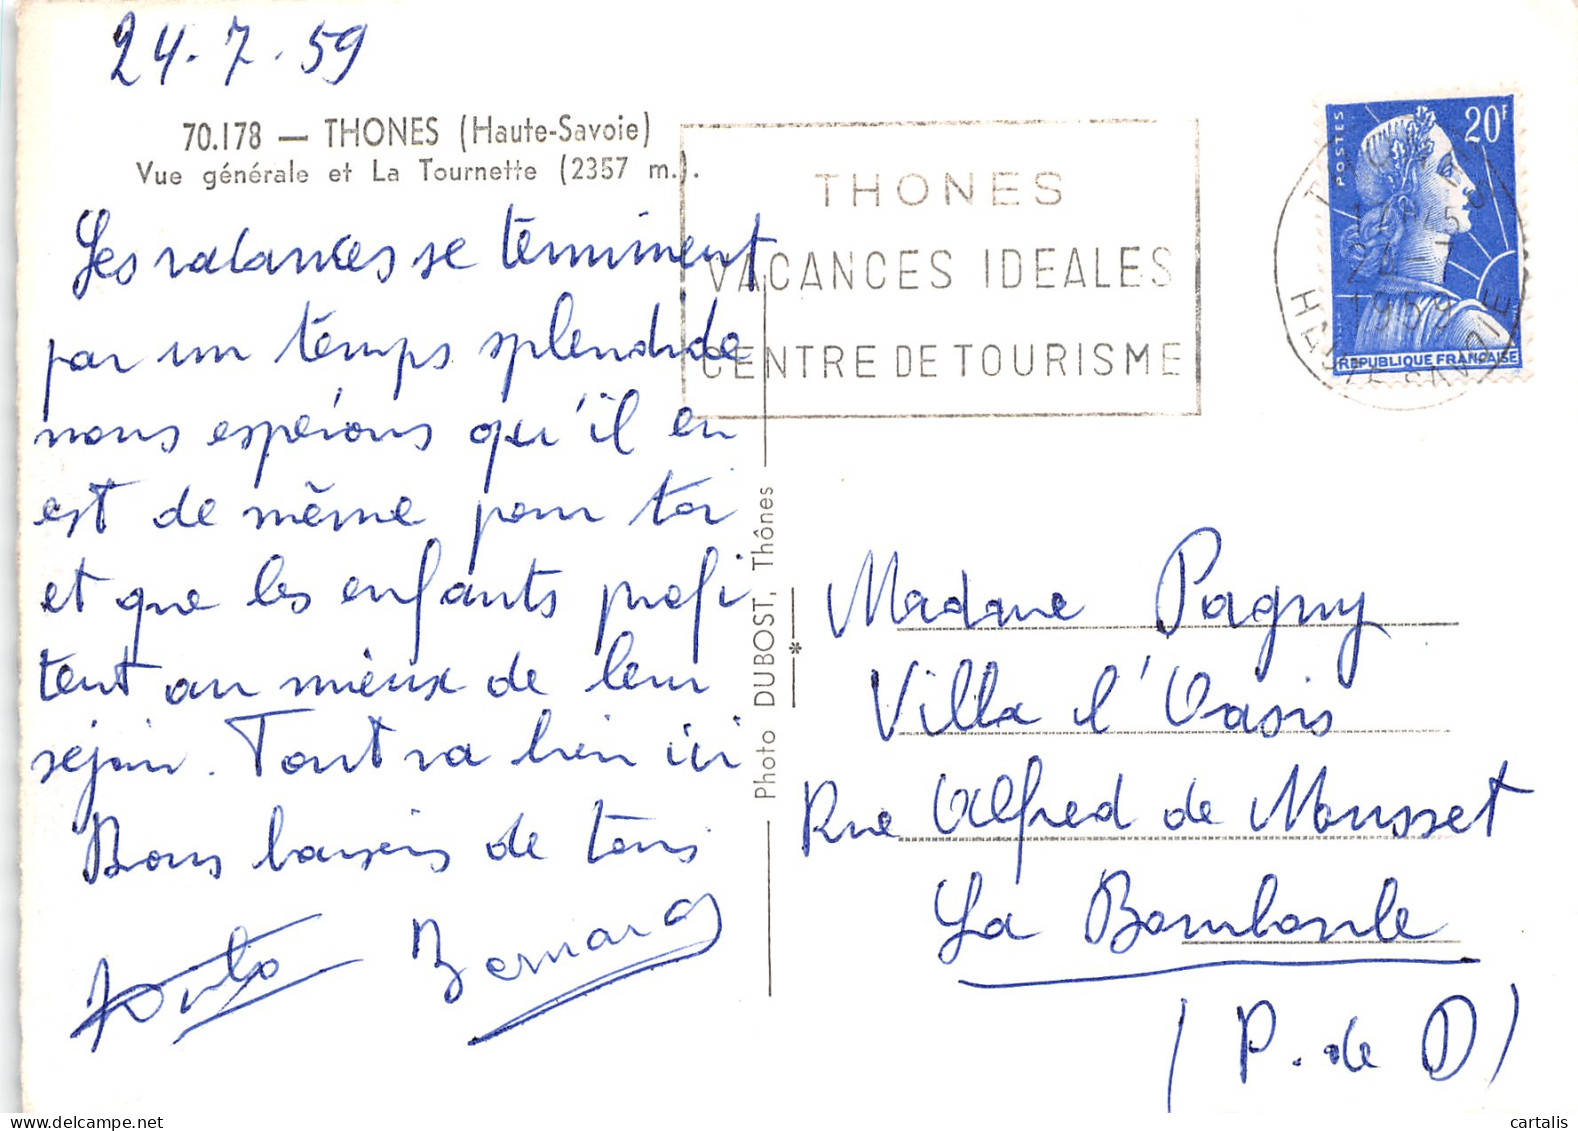 24.7.59
70.178 — THONES (Haute-Savoie)
Vue générale et La Tournette (2357 m.).
Les vacances se terminent
par un temps splendide
nous espérons qu'il en
est de même pour toi
et que les enfants profi
tent au mieux de leur
séjour. Tout va bien ici
Bons baisers de tous
Bernard
THONES
VACANCES IDEALES
CENTRE DE TOURISME
POSTES
20F
REPUBLIQUE FRANÇAISE
24-7
1959
HAUTE-SAVOIE
Photo DUBOST, Thônes
Madame Pagny
Villa l'Oasis
Rue Alfred de Musset
La Bourboule
(P. de D)
cartalis